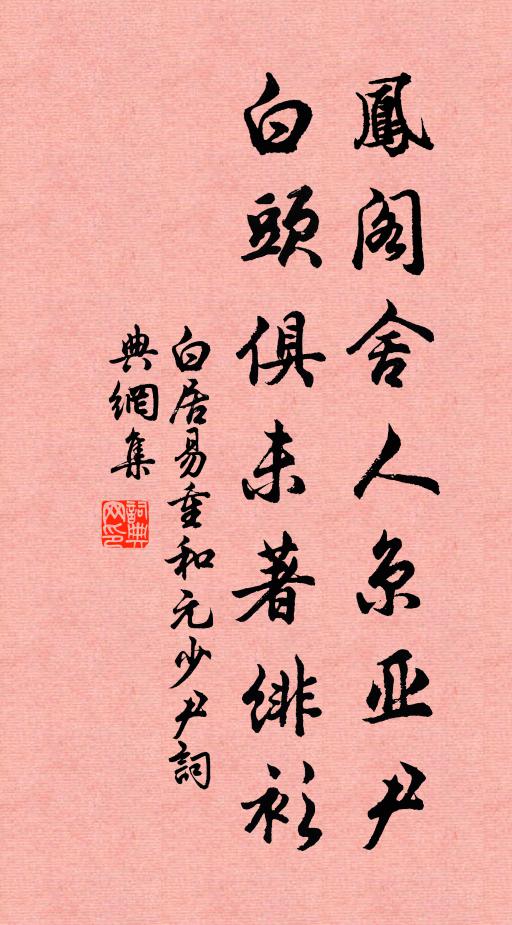 鳳閣舍人京亚尹
白頭俱未著緋衫
白居易重和元少尹詞
典網集
詞典网印